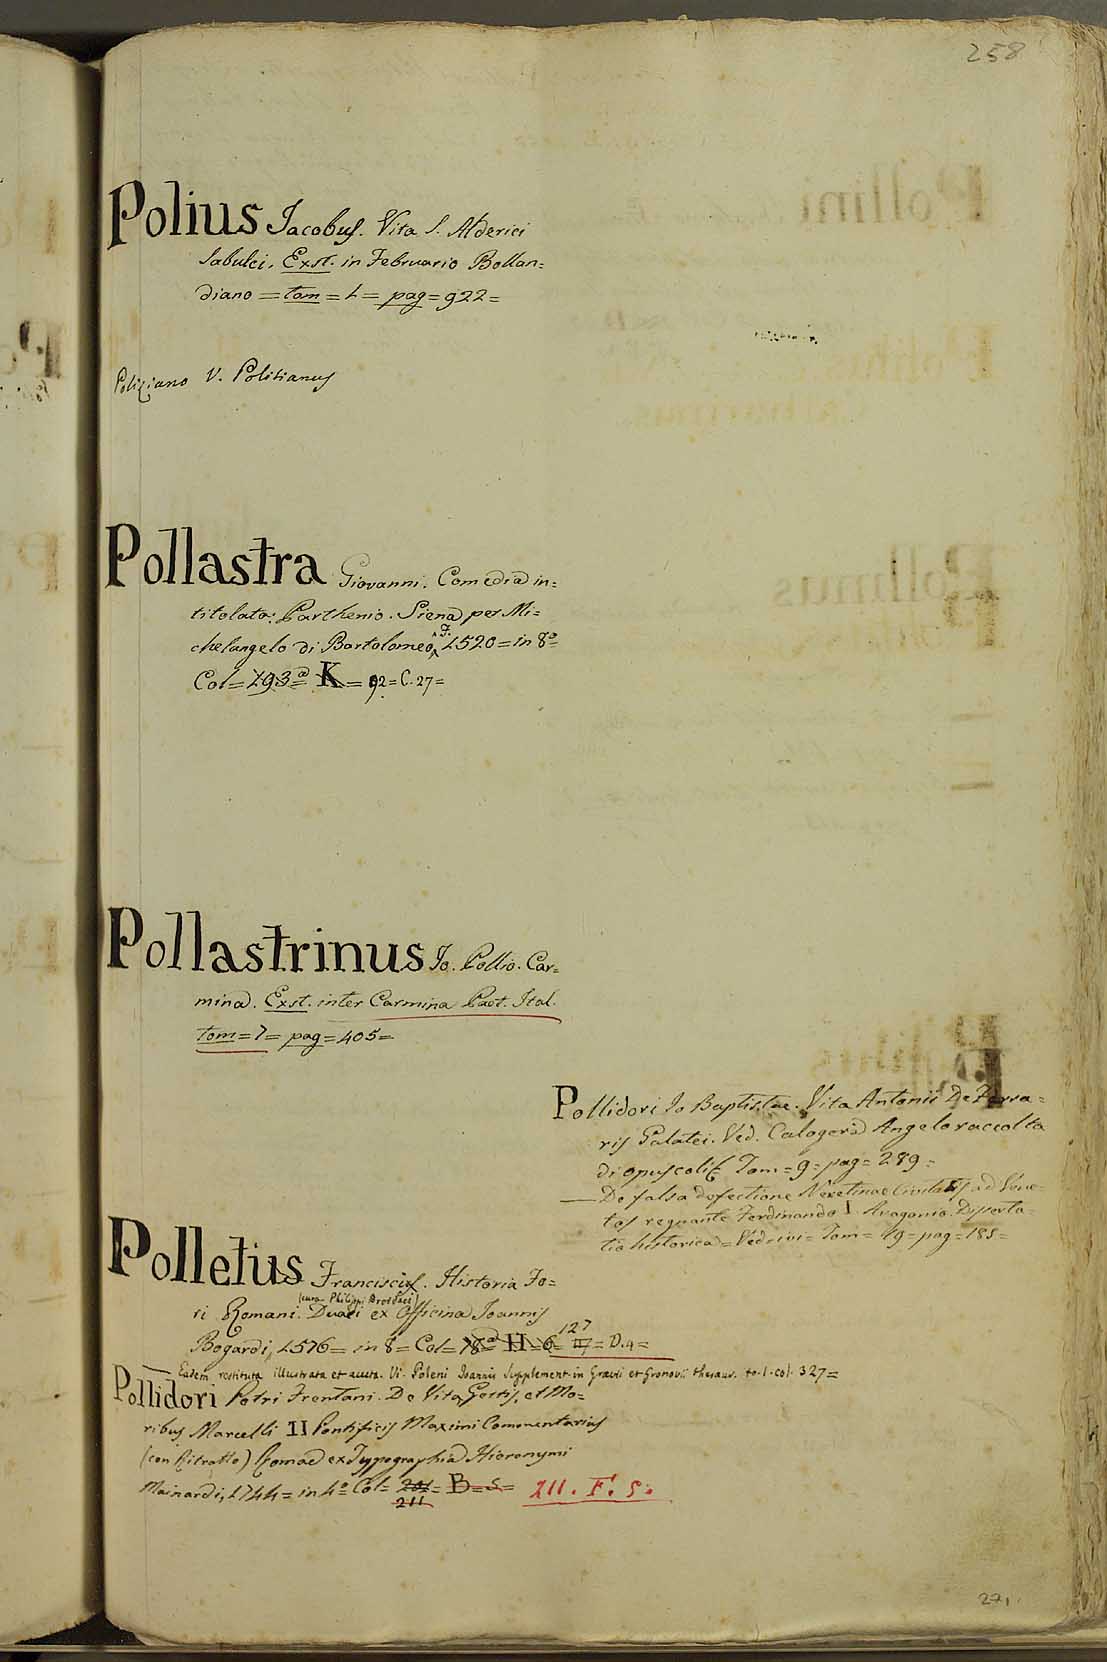 258
Polius Jacobus. Vita S. Alderici
Sabulci. Exst. in Februario Bollan=
diano = tom = 1 = pag = 922 =
Poliziano V. Politianus
Pollastra Giovanni. Comedia in=
titolata: Parthenio. Siena per Mi=
chelangelo di Bartolomeo F. 1520 = in 8º =
Col = 193 = K = 92 = C. 27 =
Pollastrinus Io. Pollio. Car=
mina. Exst. inter Carmina Poet. Ital.
tom = 7 = pag = 405 =
Pollidori Io Baptistae. Vita Antonii De Ferra=
ris Galatei. Ved. Calogerà Angelo raccolta
di opuscoli Tom = 9 = pag = 289 =
— De falsa defectione Neretinae Civitatis ad Vene=
tos regnante Ferdinando I. Aragonio. Disserta=
tio historica = Ved. ivi = Tom = 19 = pag = 185 =
Polletus Francisci. Historia Fo=
(cura Philippi Broidaei)
ri Romani. Duaci ex Officina Joannis
Bogardi, 1576 = in 8 = Col = 78 = H = 6 = 127 = D. 9 =
Eadem restituta illustrata et aucta. V. Poleni Joannis Supplement. in Graevii et Gronovii thesaur. to. 1. col. 327 =
Pollidori Petri Frentani. De Vita Gestis, et Mo=
ribus Marcelli II Pontificis Maximi Comentarius
(con Ritratto) Romae ex Typographia Hieronymi
Mainardi, 1744 = in 4º = Col = 201 = B = 5 = 211. F. 5.
211
271